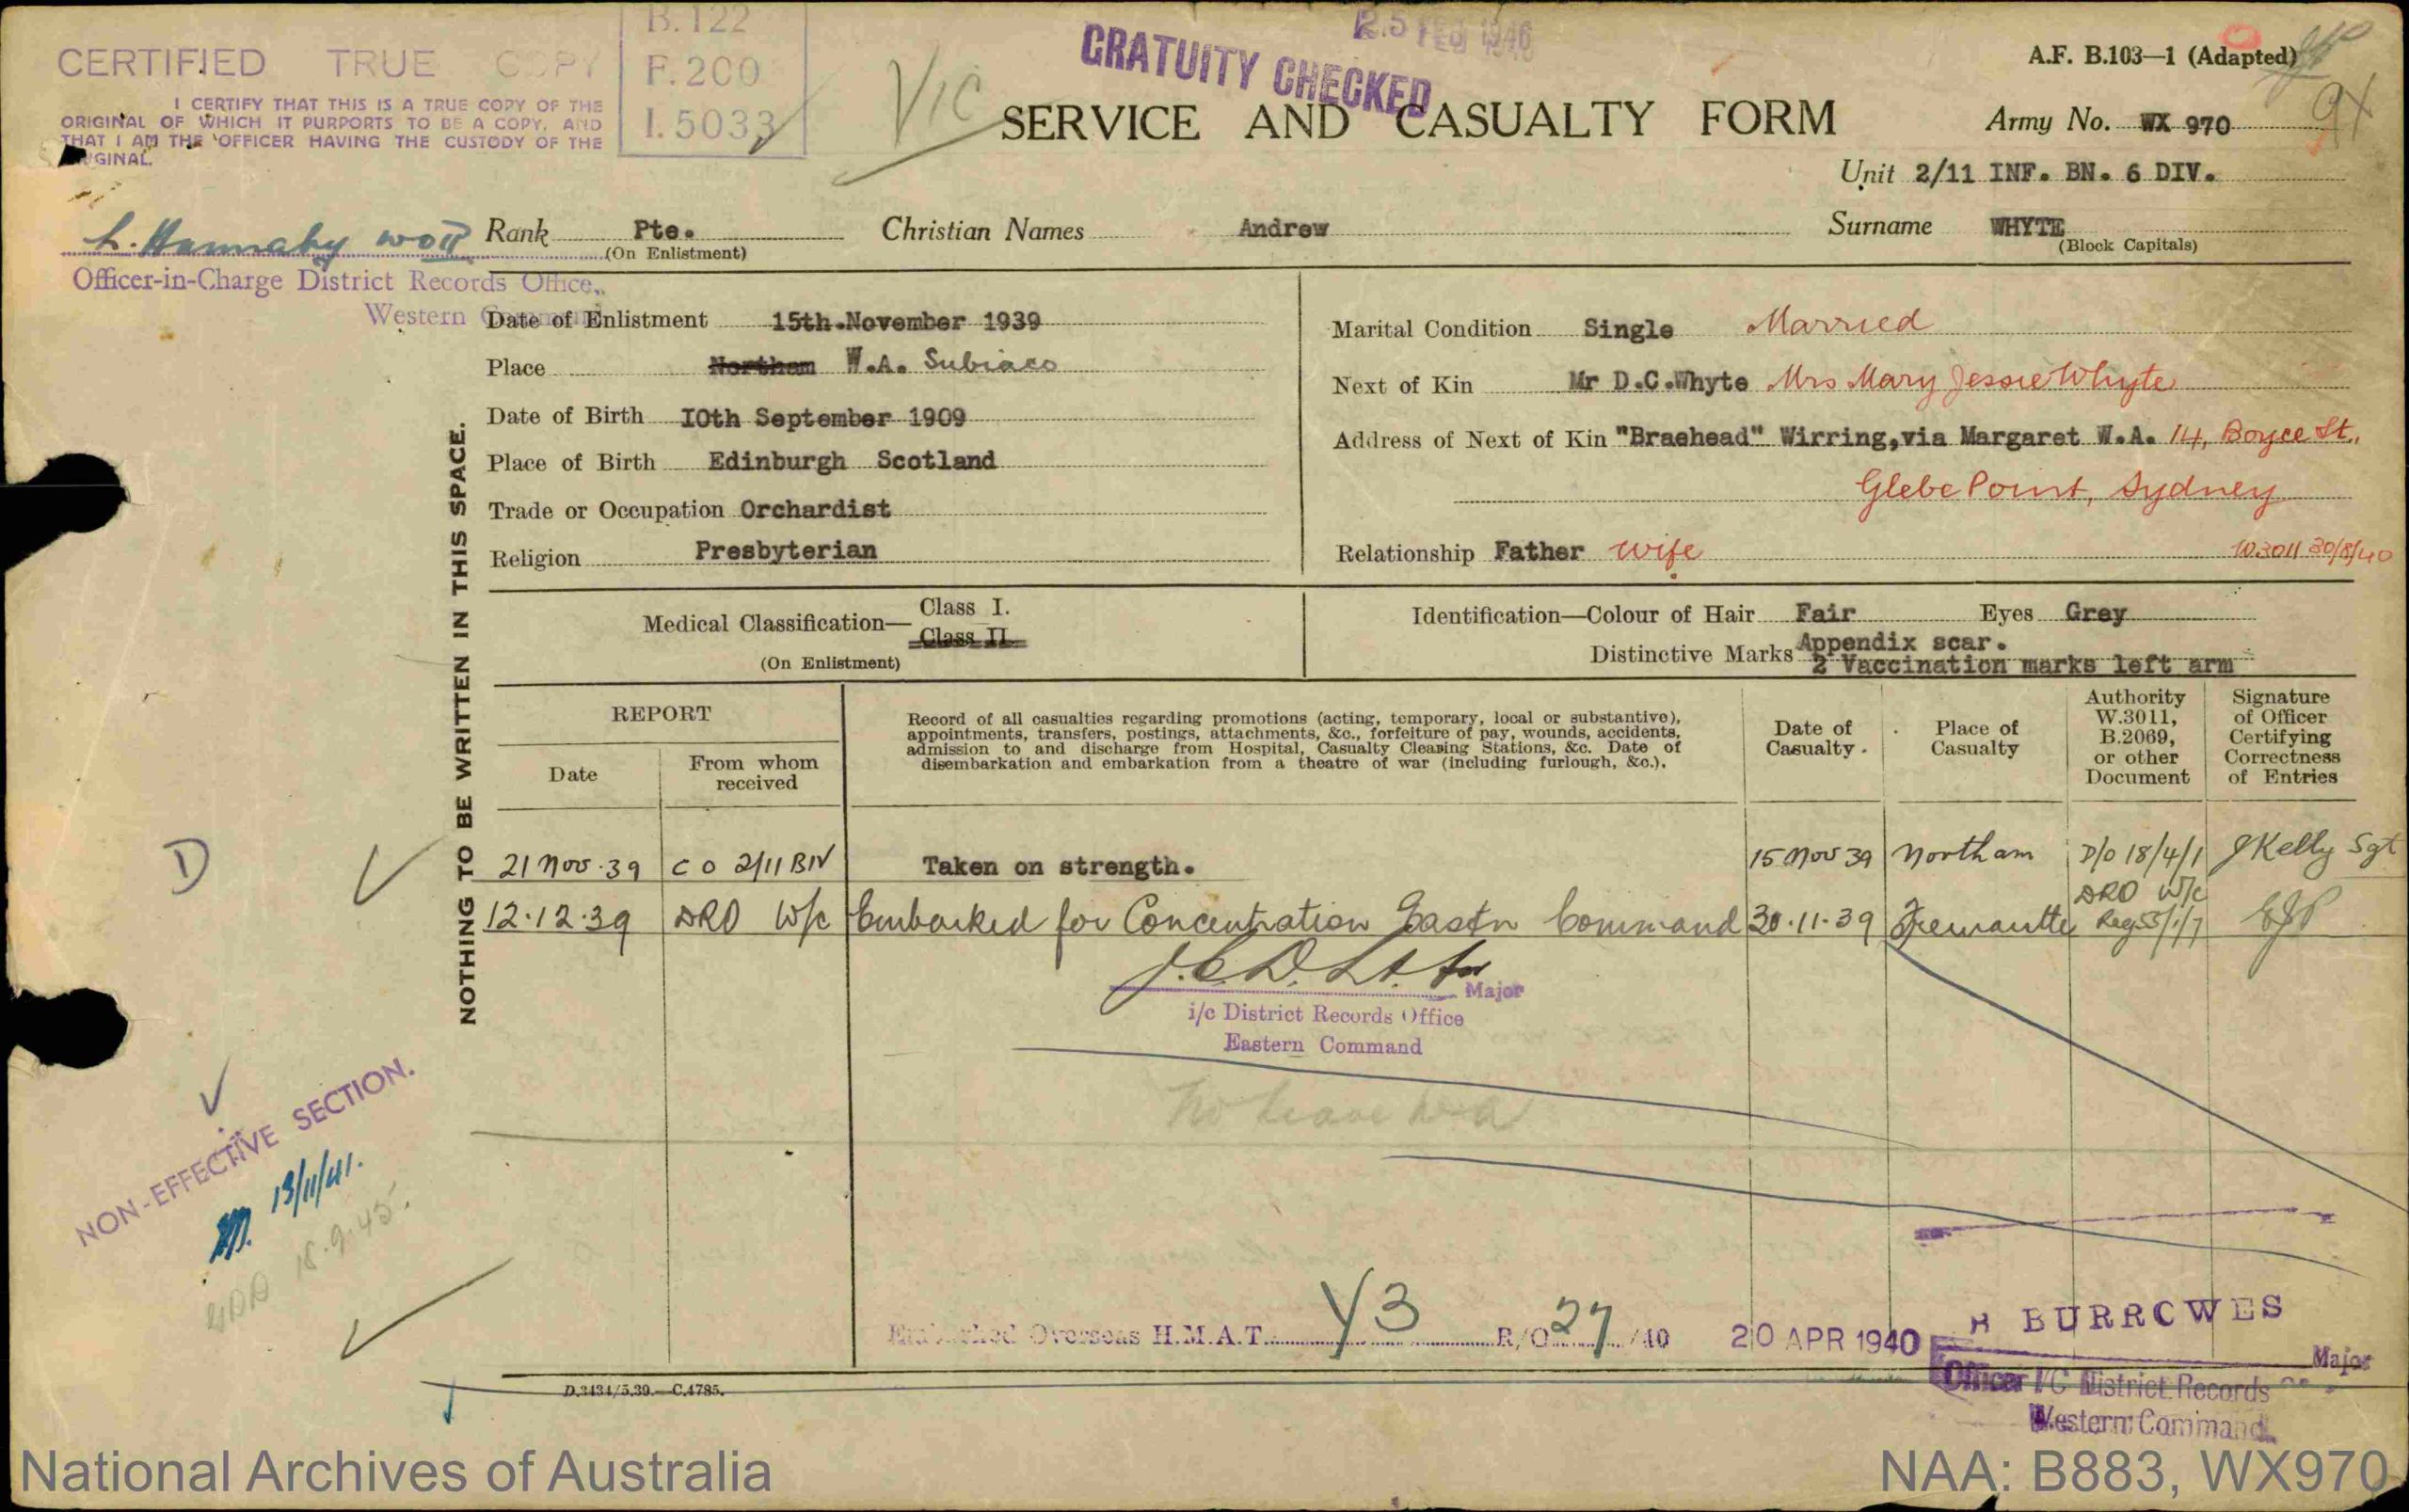 B.122
F.200
I.5033
CERTIFIED TRUE COPY
I CERTIFY THAT THIS IS A TRUE COPY OF THE
ORIGINAL OF WHICH IT PURPORTS TO BE A COPY, AND
THAT I AM THE OFFICER HAVING THE CUSTODY OF THE
ORIGINAL.
L. Hannaby WO II
Officer-in-Charge District Records Office,
Western Command
VIC
25 FEB 1946
GRATUITY CHECKED
A.F. B.103—1 (Adapted)
9X
SERVICE AND CASUALTY FORM
Army No. WX 970
Unit 2/11 INF. BN. 6 DIV.
Rank Pte. Christian Names Andrew Surname WHYTE
(On Enlistment) (Block Capitals)
Date of Enlistment 15th.November 1939
Place Northam W.A. Subiaco
Date of Birth IOth September 1909
Place of Birth Edinburgh Scotland
Trade or Occupation Orchardist
Religion Presbyterian
Marital Condition Single Married
Next of Kin Mr D.C.Whyte Mrs Mary Jessie Whyte
Address of Next of Kin "Braehead" Wirring,via Margaret W.A. 14, Boyce St.,
Glebe Point, Sydney
Relationship Father wife W3011 30/8/40
Medical Classification— Class I.
Class II
(On Enlistment)
Identification—Colour of Hair Fair Eyes Grey
Distinctive Marks Appendix scar.
2 Vaccination marks left arm
NOTHING TO BE WRITTEN IN THIS SPACE.
REPORT
Date
From whom
received
Record of all casualties regarding promotions (acting, temporary, local or substantive),
appointments, transfers, postings, attachments, &c., forfeiture of pay, wounds, accidents,
admission to and discharge from Hospital, Casualty Clearing Stations, &c. Date of
disembarkation and embarkation from a theatre of war (including furlough, &c.).
Date of
Casualty.
Place of
Casualty
Authority
W.3011,
B.2069,
or other
Document
Signature
of Officer
Certifying
Correctness
of Entries
D
21 Nov. 39 C O 2/11 BN Taken on strength. 15 Nov 39 Northam D/O 18/4/1 J Kelly Sgt
12.12.39 DRO W/C Embarked for Concentration Eastn Command 30.11.39 Fremantle DRO W/C
Reg 55/1/7
Major
i/c District Records Office
Eastern Command
No leave W.A
NON-EFFECTIVE SECTION.
13/11/41.
18.9.45.
Embarked Overseas H.M.A.T. Y3 R/O 27/40 20 APR 1940
H BURROWES
Major
Officer I/C District Records
Western Command
D.3434/5.39.—C.4785.
National Archives of Australia
NAA: B883, WX970